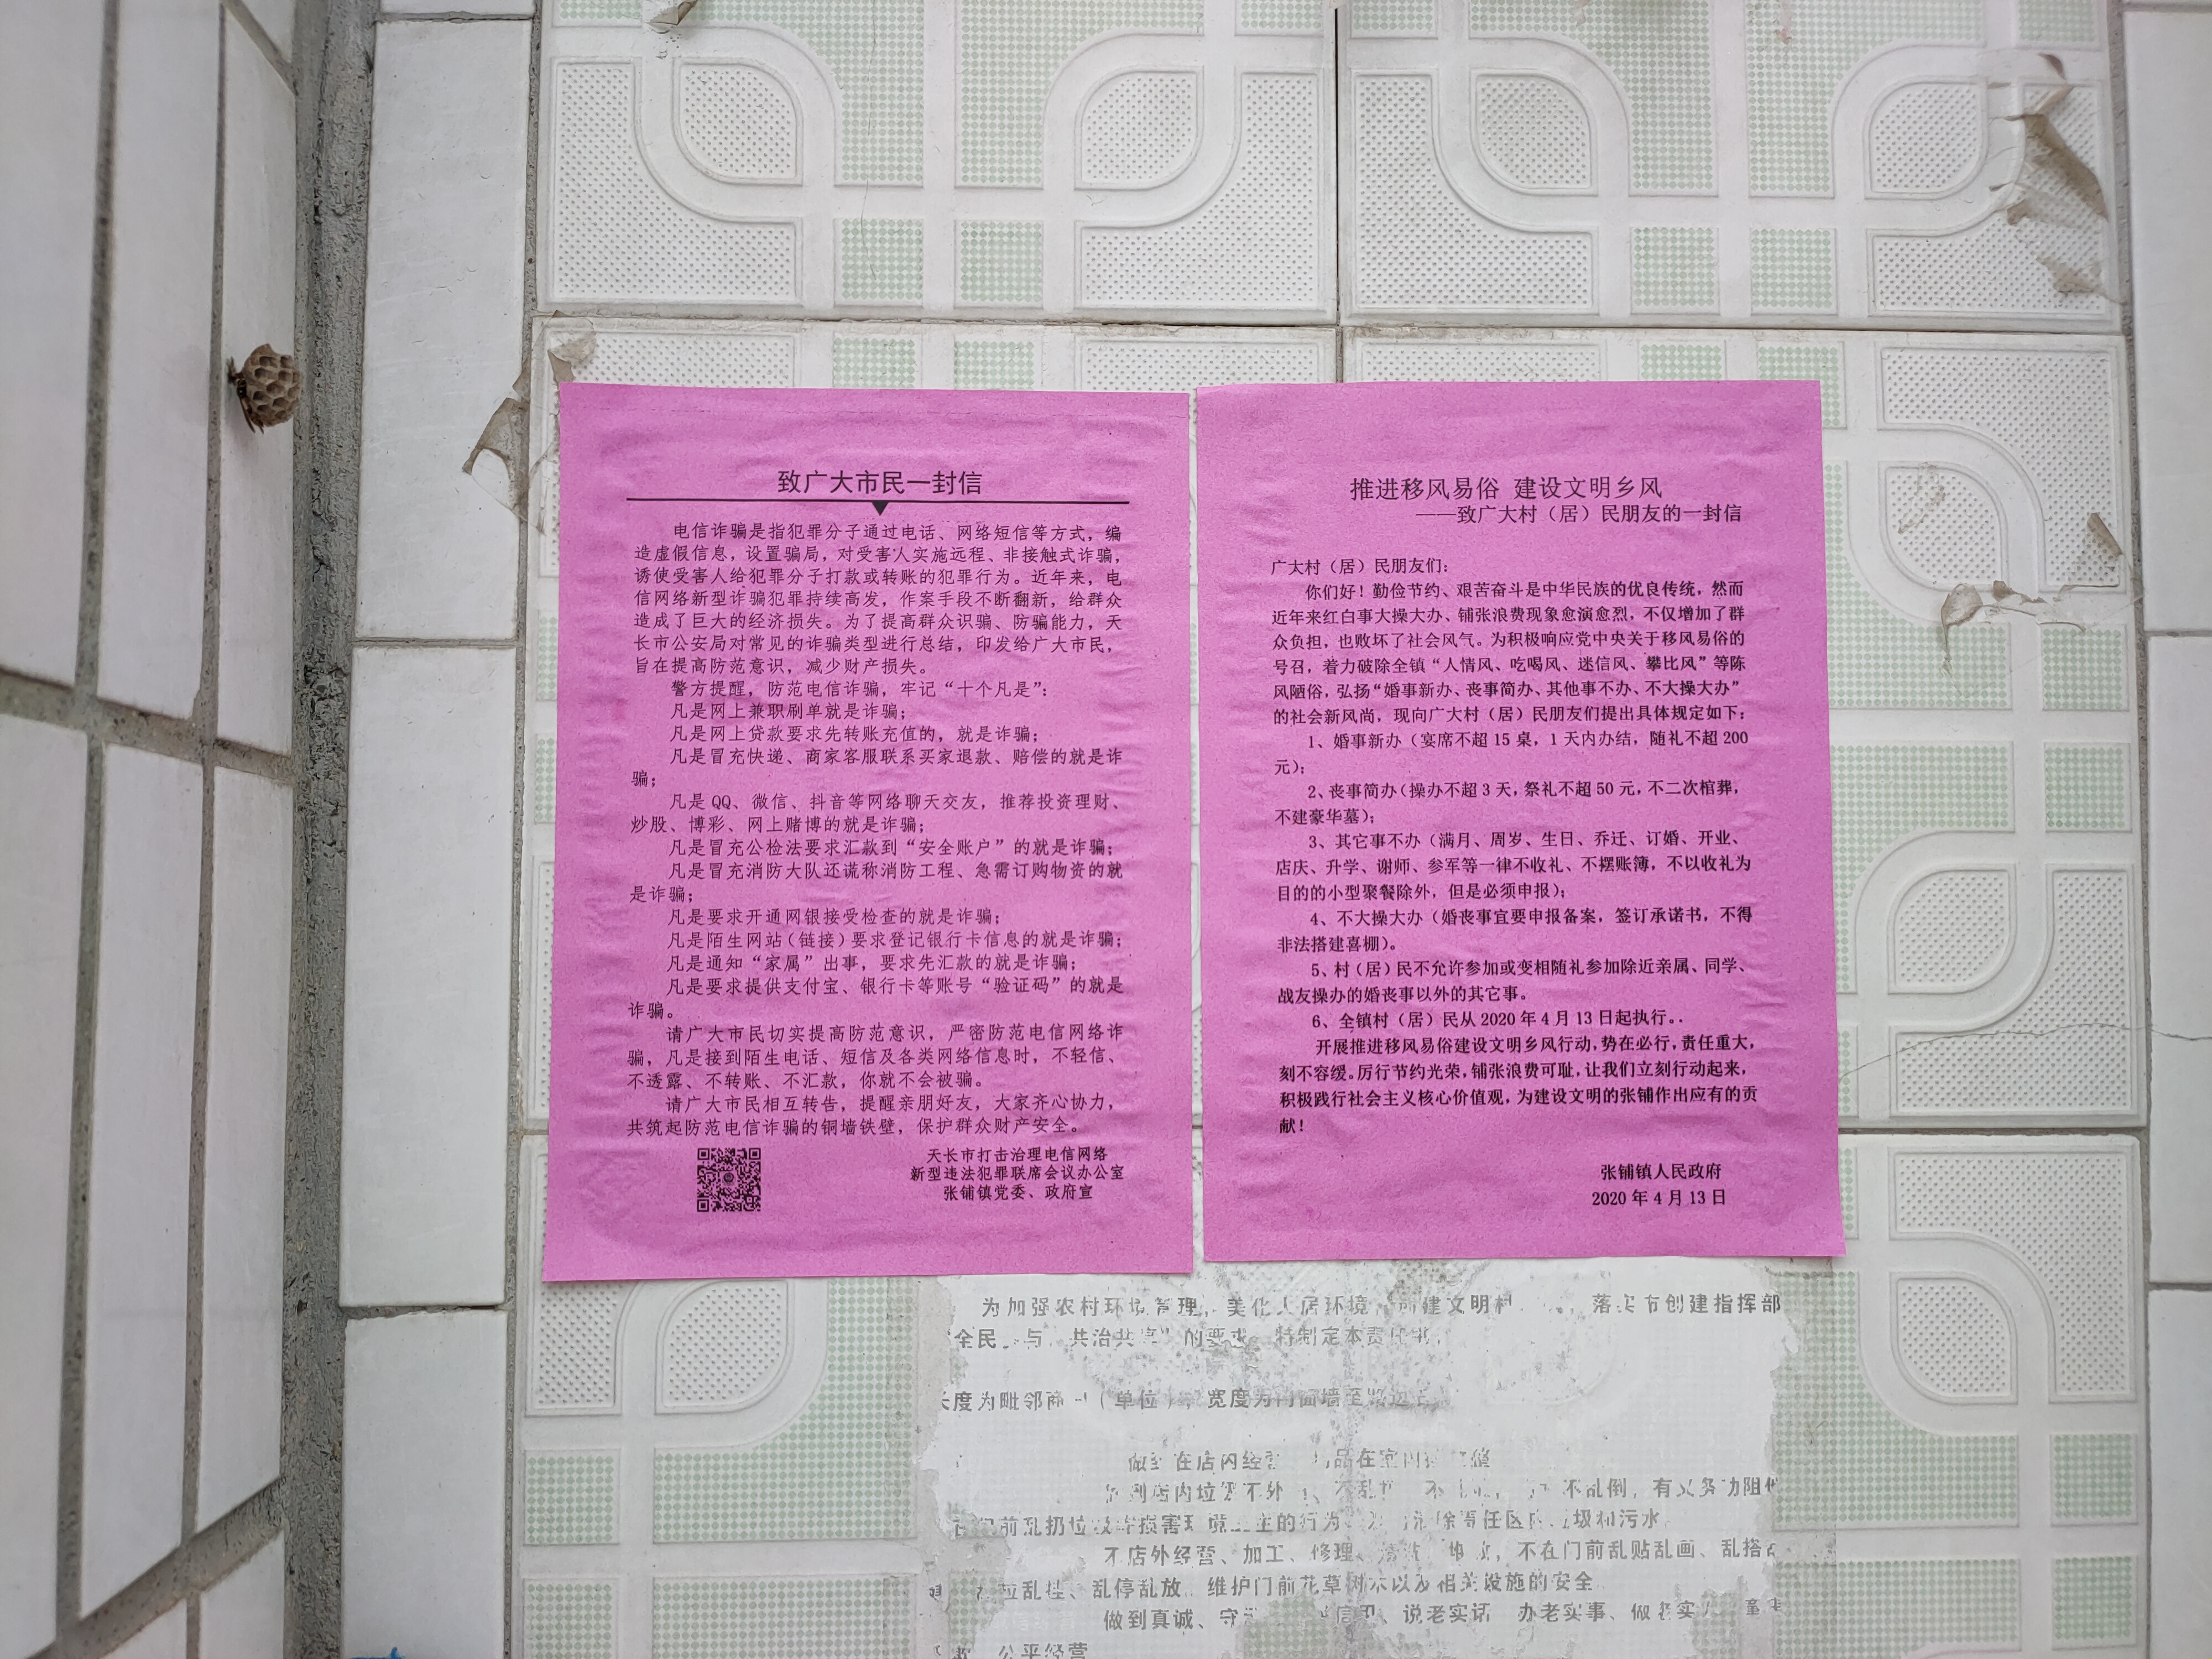 致广大市民一封信
电信诈骗是指犯罪分子通过电话、网络短信等方式，编
造虚假信息，设置骗局，对受害人实施远程、非接触式诈骗，
诱使受害人给犯罪分子打款或转账的犯罪行为。近年来，电
信网络新型诈骗犯罪持续高发，作案手段不断翻新，给群众
造成了巨大的经济损失。为了提高群众识骗、防骗能力，天
长市公安局对常见的诈骗类型进行总结，印发给广大市民，
旨在提高防范意识，减少财产损失。
警方提醒，防范电信诈骗，牢记“十个凡是”：
凡是网上兼职刷单就是诈骗；
凡是网上贷款要求先转账充值的，就是诈骗；
凡是冒充快递、商家客服联系买家退款、赔偿的就是诈
骗；
凡是 QQ、微信、抖音等网络聊天交友，推荐投资理财、
炒股、博彩、网上赌博的就是诈骗；
凡是冒充公检法要求汇款到“安全账户”的就是诈骗；
凡是冒充消防大队还谎称消防工程、急需订购物资的就
是诈骗；
凡是要求开通网银接受检查的就是诈骗；
凡是陌生网站（链接）要求登记银行卡信息的就是诈骗；
凡是通知“家属”出事，要求先汇款的就是诈骗；
凡是要求提供支付宝、银行卡等账号“验证码”的就是
诈骗。
请广大市民切实提高防范意识，严密防范电信网络诈
骗，凡是接到陌生电话、短信及各类网络信息时，不轻信、
不透露、不转账、不汇款，你就不会被骗。
请广大市民相互转告，提醒亲朋好友，大家齐心协力，
共筑起防范电信诈骗的铜墙铁壁，保护群众财产安全。
天长市打击治理电信网络
新型违法犯罪联席会议办公室
张铺镇党委、政府宣
推进移风易俗 建设文明乡风
——致广大村（居）民朋友的一封信
广大村（居）民朋友们：
你们好！勤俭节约、艰苦奋斗是中华民族的优良传统，然而
近年来红白事大操大办、铺张浪费现象愈演愈烈，不仅增加了群
众负担，也败坏了社会风气。为积极响应党中央关于移风易俗的
号召，着力破除全镇“人情风、吃喝风、迷信风、攀比风”等陈
风陋俗，弘扬“婚事新办、丧事简办、其他事不办、不大操大办”
的社会新风尚，现向广大村（居）民朋友们提出具体规定如下：
1、婚事新办（宴席不超 15 桌，1 天内办结，随礼不超 200
元）；
2、丧事简办（操办不超 3 天，祭礼不超 50 元，不二次棺葬，
不建豪华墓）；
3、其它事不办（满月、周岁、生日、乔迁、订婚、开业、
店庆、升学、谢师、参军等一律不收礼、不摆账簿，不以收礼为
目的的小型聚餐除外，但是必须申报）；
4、不大操大办（婚丧事宜要申报备案，签订承诺书，不得
非法搭建喜棚）。
5、村（居）民不允许参加或变相随礼参加除近亲属、同学、
战友操办的婚丧事以外的其它事。
6、全镇村（居）民从 2020 年 4 月 13 日起执行。.
开展推进移风易俗建设文明乡风行动，势在必行，责任重大，
刻不容缓。厉行节约光荣，铺张浪费可耻，让我们立刻行动起来，
积极践行社会主义核心价值观，为建设文明的张铺作出应有的贡
献！
张铺镇人民政府
2020 年 4 月 13 日
为加强农村环境管理，美化人居环境，建文明村，落实市创建指挥部
“全民 与、共治共享”的要求，特制定本责任书
长度为毗邻商（单位），宽度为门面墙至路边
做到在店内经营 品在室内
到店内垃圾不外 、不乱 不 不乱倒，有义务劝阻
门前乱扔垃圾等损害环境卫生的行为 除责任区内垃圾和污水
不店外经营、加工、修理、 堆放，不在门前乱贴乱画、乱搭
拉乱挂、乱停乱放 维护门前花草树木以及相关设施的安全
做到真诚、守 信用、说老实话 办老实事、做老实人 童叟
公平经营